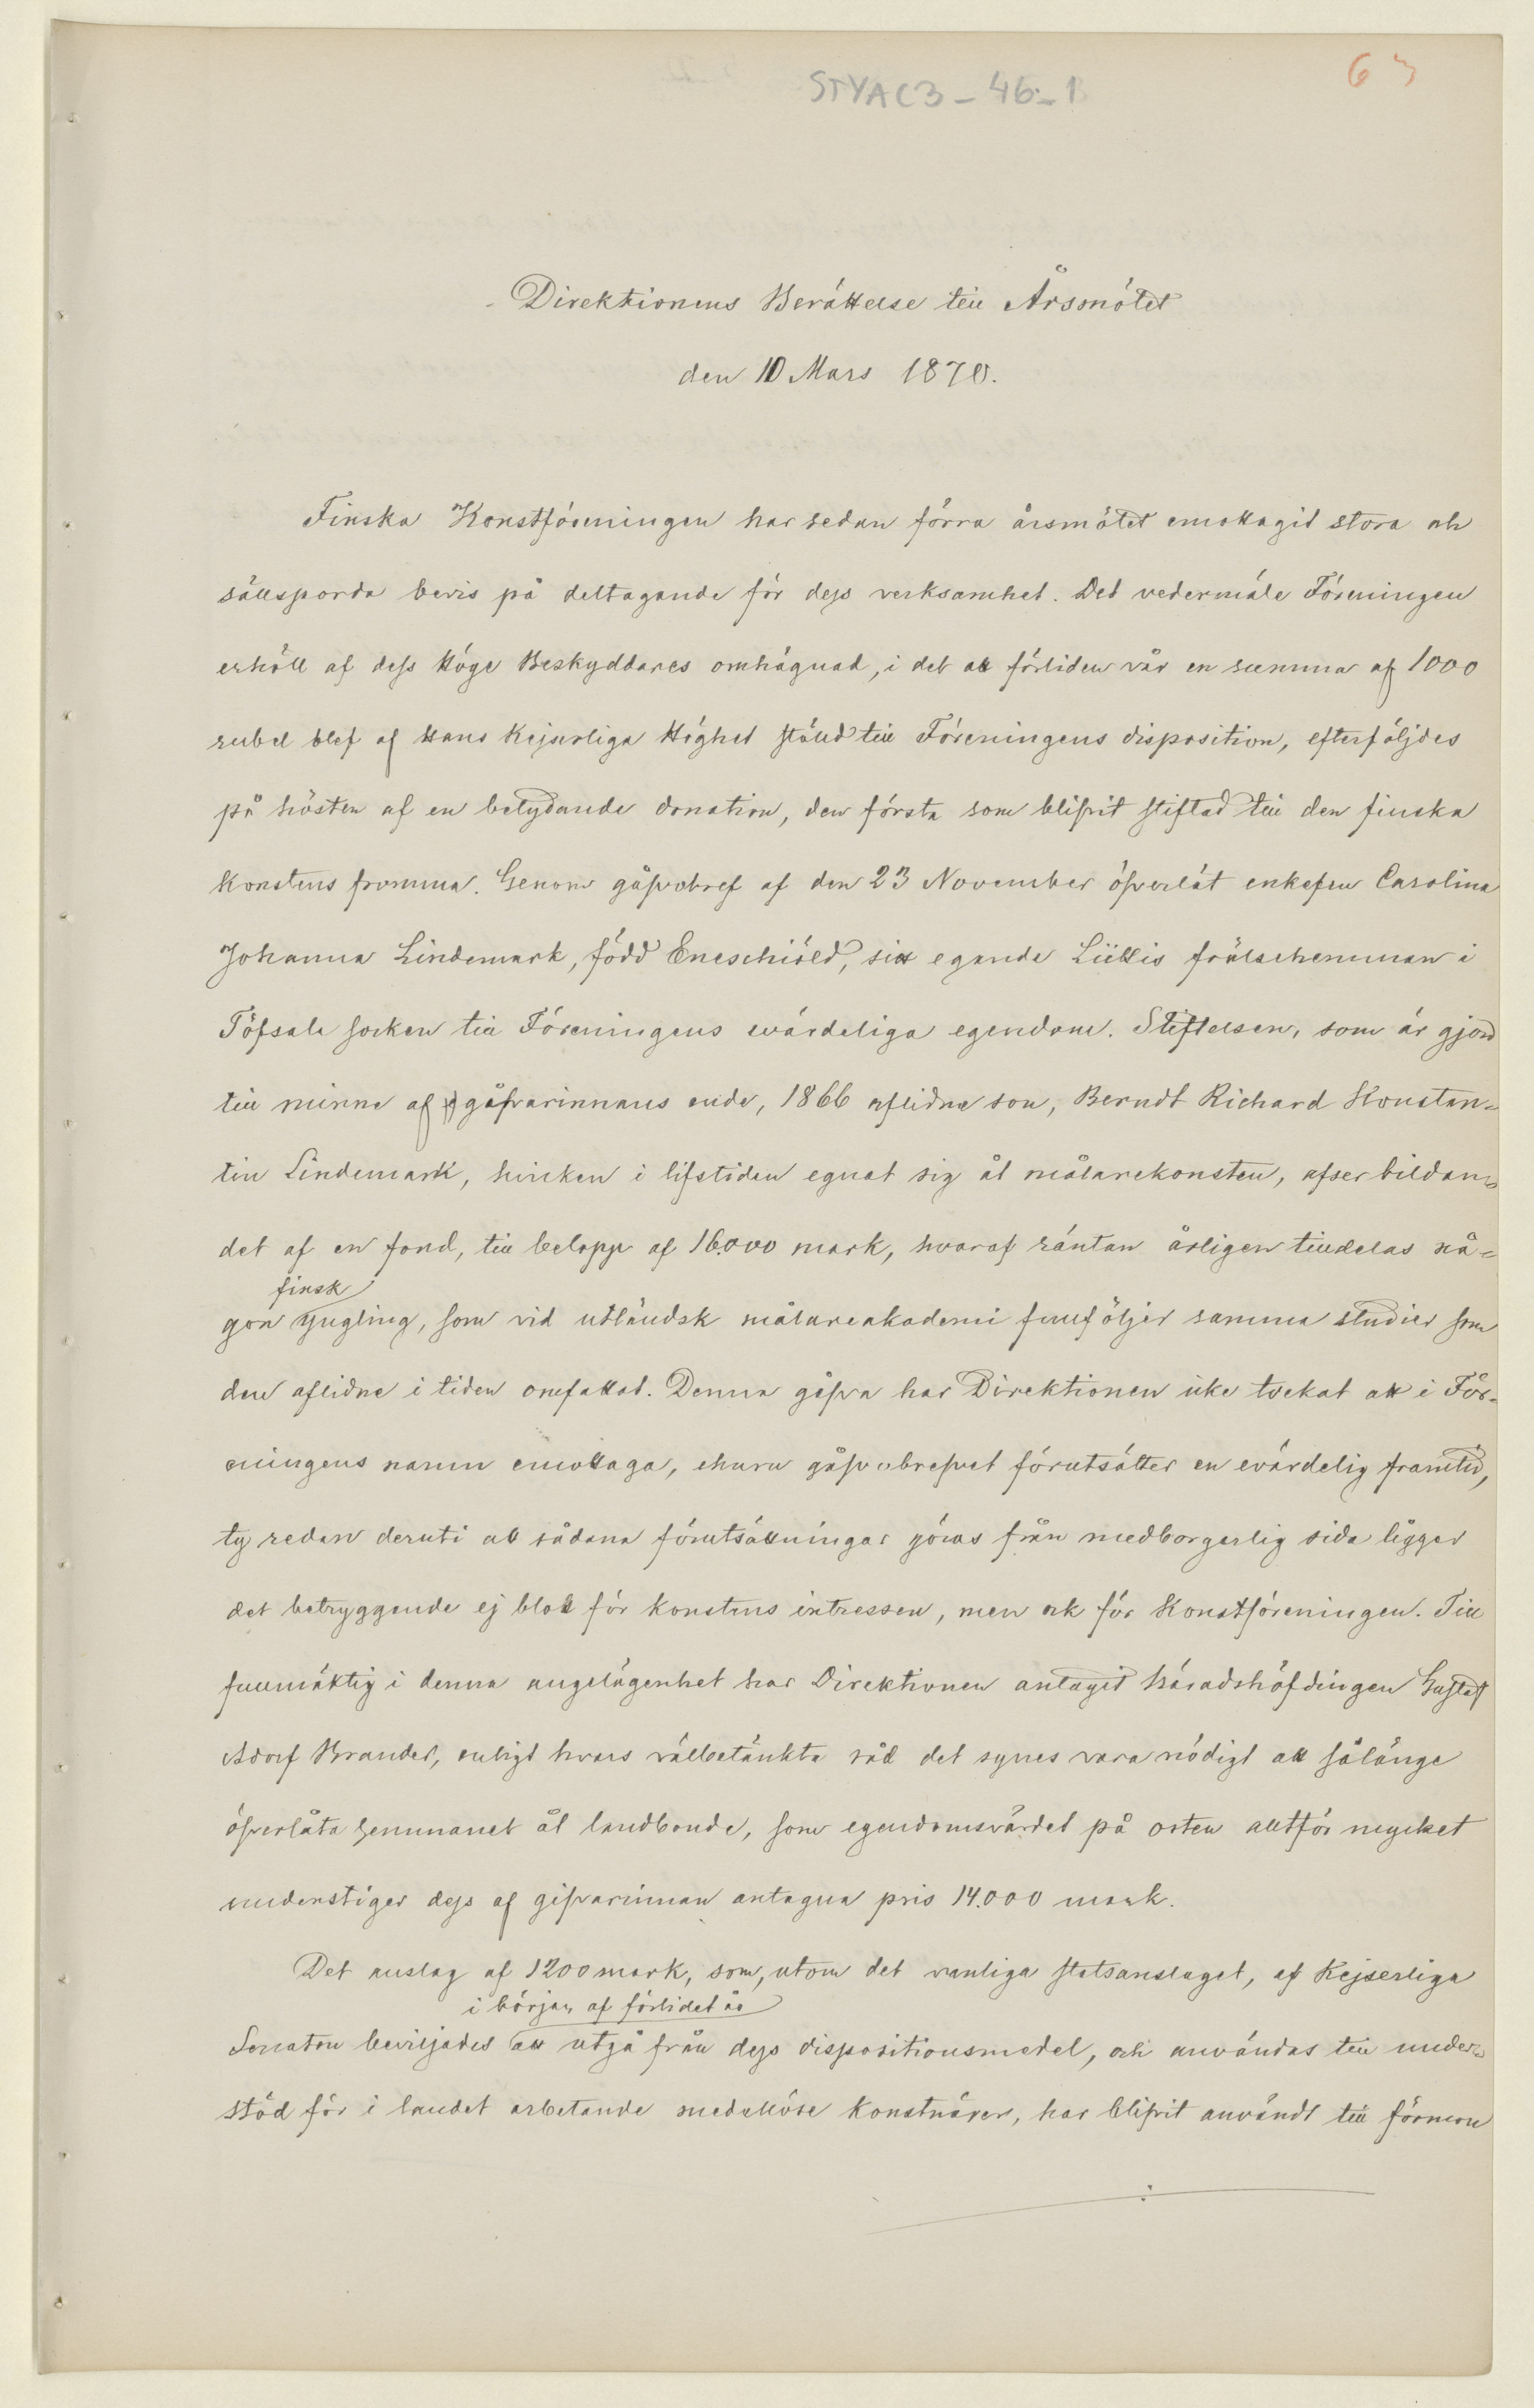 STYA C3 - 46 - 1
63
Direktionens Berättelse till Årsmötet
den 10 Mars 1870.
Finska Konstföreningen har sedan förra årsmötet emottagit stora och
sällsporda bevis på deltagande för dess verksamhet. Det vedermäle Föreningen
erhöll af dess Höge Beskyddares omhägnad, i det att förliden vår en summa af 1000
rubel blef af Hans Kejserliga Höghet stäld till Föreningens disposition, efterföljdes
på hösten af en betydande donation, den första som blifvit stiftad till den finska
konstens fromma. Genom gåfvobref af den 23 November öfverlät enkefru Carolina
Johanna Lindemark, född Eneschiöld, sitt egande frälsehemman i
Töfsala socken till Föreningens evärdeliga egendom. Stiftelsen, som är gjord
till minne af gåfvarinnans enda, 1866 aflidna son, Berndt Richard Konstan-
tin Lindemark, hvilken i lifstiden egnat sig åt målarekonsten, afser bildan-
det af en fond, till belopp af 16.000 mark, hvaraf räntan årligen tilldelas nå-
finsk
gon yngling, som vid utländsk målareakademi fullföljer samma studier som
den aflidne i tiden omfattat. Denna gåfva har Direktionen icke tvekat att i För-
eningens namn emottaga, ehuru gåfvobrefvet förutsätter en evärdelig framtid,
ty redan deruti att sådana förutsättningar göras från medborgerlig sida ligger
det betryggande ej blott för konstens intressen, men ock för Konstföreningen. Till
fullmäktig i denna angelägenhet har Direktionen antagit häradshöfdingen Gustaf
Adolf Brander, enligt hvars välbetänkta råd det synes vara nödigt att sålänge
öfverlåta hemmanet åt landbonde, som egendomsvärdet på orten alltför mycket
understiger dess af gifvarinnan antagna pris 14.000 mark.
Det anslag af 1200 mark, som, utom det vanliga statsanslaget, af Kejserliga
i början af förlidet år
Senaten beviljades att utgå från dess dispositionsmedel, och användas till under-
stöd för i landet arbetande medellöse konstnärer, har blifvit användt till förmon